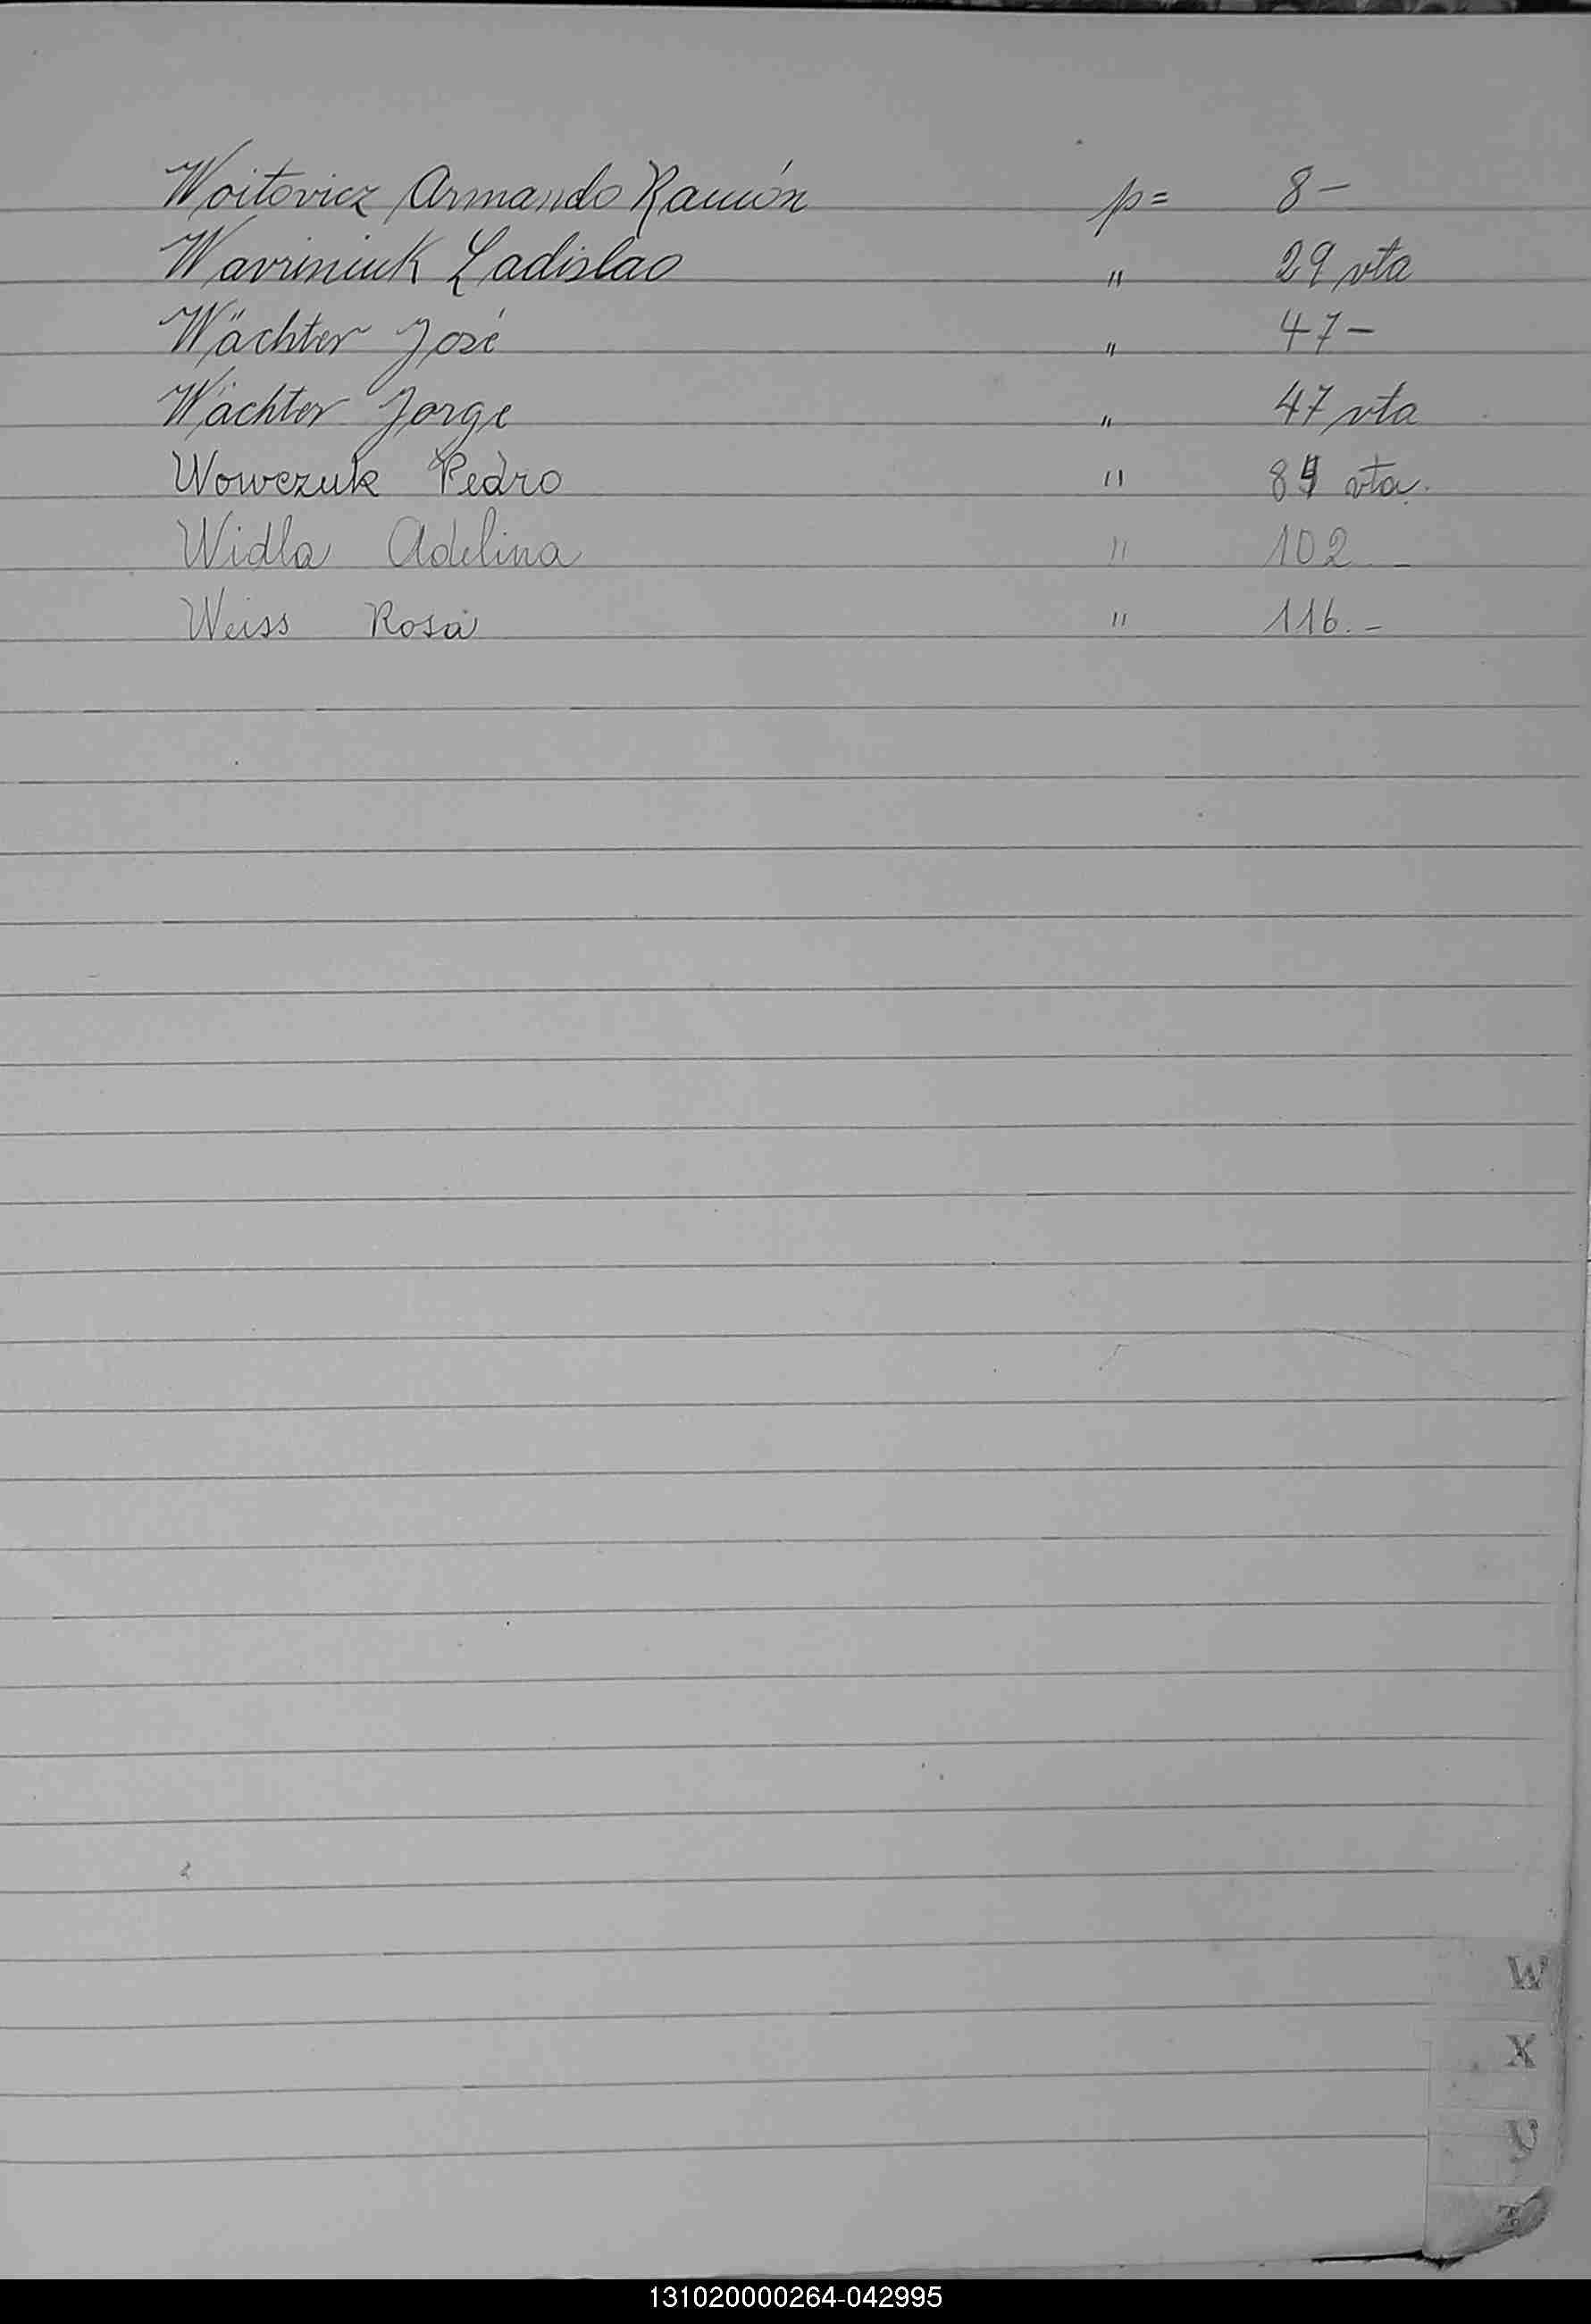 Woitovicz Armando Ramón p= 8-
Wavriniuk Ladislao " 29 vta
Wächter José " 47-
Wächter Jorge " 47 vta
Wowczuk Pedro " 84 vta.
Widla Adelina " 102 -
Weiss Rosa " 116.-
W
X
Y
Z
131020000264-042995